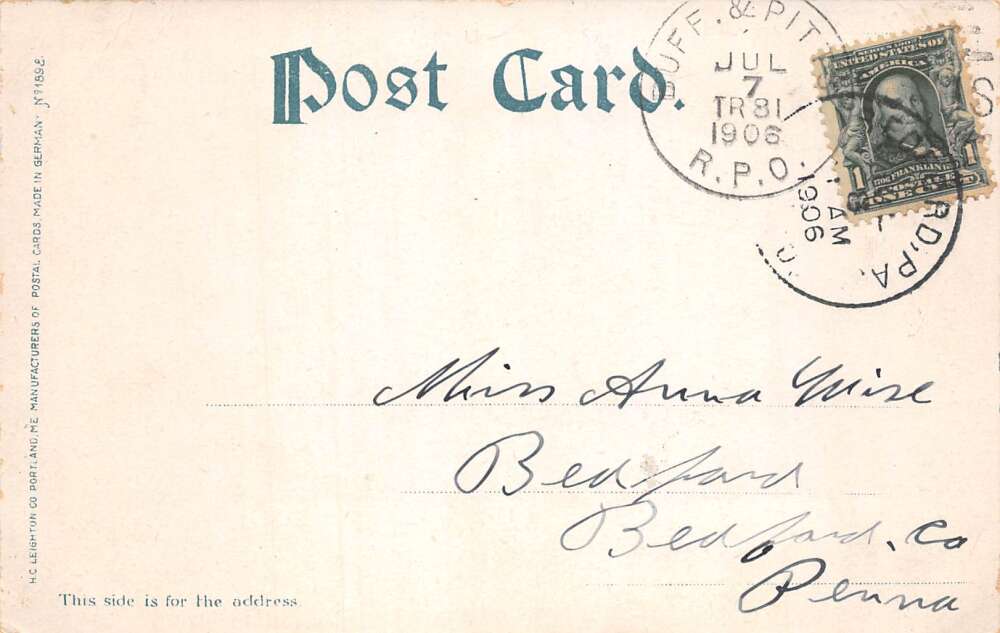 Post Card.
BUFF. & PIT
JUL
7
TR 81
1906
R.P.O.
SERIES 1902
UNITED STATES OF
AMERICA
1
1706 FRANKLIN 1790
POSTAGE
ONE CENT
1
RD, PA.
AM
1906
H.C. LEIGHTON CO PORTLAND, ME. MANUFACTURERS OF POSTAL CARDS, MADE IN GERMANY Nº 1898
Miss Anna
Bedford
Bedford, Co
Penna
This side is for the address.